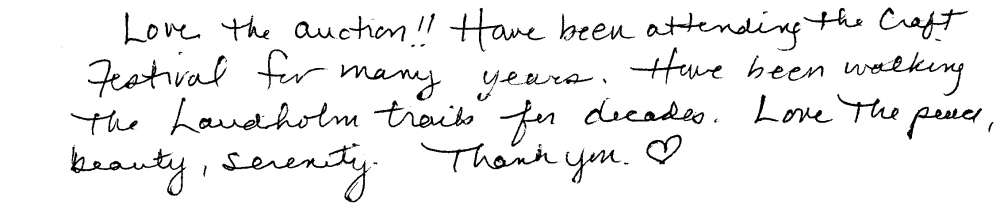 Love the auction!! Have been attending the Craft
Festival for many years. Have been walking
the Laudholm trails for decades. Love The peace,
beauty, serenity. Thank you. ♡